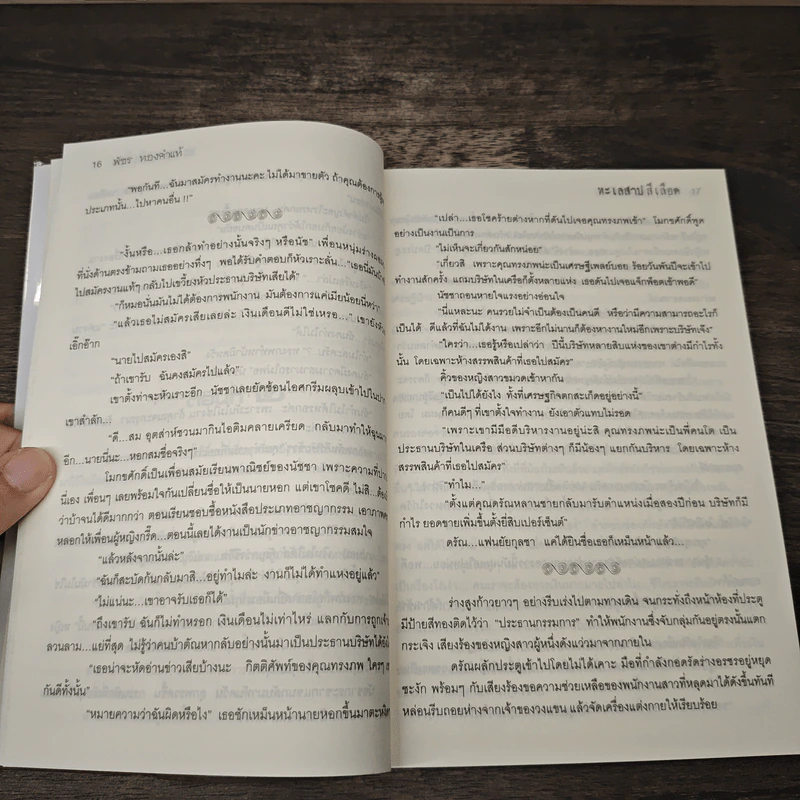 16 พัชร ทองคำแท้
"พอกันที...ฉันมาสมัครทำงานนะคะ ไม่ได้มาขายตัว ถ้าคุณต้องการผู้
ประเภทนั้น...ไปหาคนอื่น !!"
"งั้นหรือ...เธอกล้าทำอย่างนั้นจริงๆ หรือนัช" เพื่อนหนุ่มร่างผอม
ที่นั่งด้านตรงข้ามถามเธออย่างทึ่งๆ พอได้รับคำตอบก็หัวเราะลั่น..."เธอนี่มัน
ไปสมัครงานแท้ๆ กลับไปเขวี้ยงหัวประธานบริษัทเสียได้"
"ก็หมอนั่นมันไม่ได้ต้องการพนักงาน มันต้องการแค่เมียน้อยนี่หว่า"
"แล้วเธอไม่สมัครเสียเลยล่ะ เงินเดือนดีไม่ใช่เหรอ..." เขายังหัว
เอิ๊กอ๊าก
"นายไปสมัครเองสิ"
"ถ้าเขารับ ฉันคงสมัครไปแล้ว"
เขาตั้งท่าจะหัวเราะอีก นัชชาเลยยัดช้อนไอศกรีมผลุบเข้าไปในปาก
เขาสำลัก...
"ดี...สม อุตส่าห์ชวนมากินไอติมคลายเครียด กลับมาทำให้
อีก...นายนี่นะ...หอกสมชื่อจริงๆ"
โมกขศักดิ์เป็นเพื่อนสมัยเรียนพาณิชย์ของนัชชา เพราะความที่ปาก
นี่เอง เพื่อนๆ เลยพร้อมใจกันเปลี่ยนชื่อให้เป็นนายหอก แต่เขาโชคดี ไม่สิ...ต้อง
ว่าบ้าจนได้ดีมากกว่า ตอนเรียนชอบซื้อหนังสือประเภทอาชญากรรม เอาภาพ
หลอกให้เพื่อนผู้หญิงกรี๊ด...ตอนนี้เลยได้งานเป็นนักข่าวอาชญากรรมสมใจ
"แล้วหลังจากนั้นล่ะ"
"ฉันก็สะบัดก้นกลับมาสิ...อยู่ทำไมล่ะ งานก็ไม่ได้ทำแหงอยู่แล้ว"
"ไม่แน่นะ...เขาอาจรับเธอก็ได้"
"ถึงเขารับ ฉันก็ไม่ทำหรอก เงินเดือนไม่เท่าไหร่ แลกกับการถูกเจ้า
ลวนลาม...แย่ที่สุด ไม่รู้ว่าคนบ้าตัณหากลับอย่างนั้นมาเป็นประธานบริษัทได้ยังไง
"เธอน่าจะหัดอ่านข่าวเสียบ้างนะ กิตติศัพท์ของคุณทรงภพ ใครๆ
กันดีทั้งนั้น"
"หมายความว่าฉันผิดหรือไง" เธอชักเหม็นหน้านายหอกขึ้นมาตะหงิด
ทะเลสาปสีเลือด 17
"เปล่า...เธอโชคร้ายต่างหากที่ดันไปเจอคุณทรงภพเข้า" โมกขศักดิ์พูด
อย่างเป็นงานเป็นการ
"ไม่เห็นจะเกี่ยวกันสักหน่อย"
"เกี่ยวสิ เพราะคุณทรงภพน่ะเป็นเศรษฐีเพลย์บอย ร้อยวันพันปีจะเข้าไป
ทำงานสักครั้ง แถมบริษัทในเครือก็ตั้งหลายแห่ง เธอดันไปเจอแจ็กพ็อตเข้าพอดี"
นัชชาถอนหายใจแรงอย่างอ่อนใจ
"นี่แหละนะ คนรวยไม่จำเป็นต้องเป็นคนดี หรือว่ามีความสามารถอะไรก็
เป็นได้ ดีแล้วที่ฉันไม่ได้งาน เพราะอีกไม่นานก็ต้องหางานใหม่อีกเพราะบริษัทเจ๊ง"
"ใครว่า...เธอรู้หรือเปล่าว่า ปีนี้บริษัทหลายสิบแห่งของเขาต่างมีกำไรทั้ง
นั้น โดยเฉพาะห้างสรรพสินค้าที่เธอไปสมัคร"
คิ้วของหญิงสาวขมวดเข้าหากัน
"เป็นไปได้ยังไง ทั้งที่เศรษฐกิจตกสะเก็ดอยู่อย่างนี้"
ก็คนดีๆ ที่เขาตั้งใจทำงาน ยังเอาตัวแทบไม่รอด
"เพราะเขามีมือดีบริหารงานอยู่น่ะสิ คุณทรงภพน่ะเป็นพี่คนโต เป็น
ประธานบริษัทในเครือ ส่วนบริษัทต่างๆ ก็มีน้องๆ แยกกันบริหาร โดยเฉพาะห้าง
สรรพสินค้าที่เธอไปสมัคร"
"ทำไม..."
"ตั้งแต่คุณดรัณหลานชายกลับมารับตำแหน่งเมื่อสองปีก่อน บริษัทก็มี
กำไร ยอดขายเพิ่มขึ้นตั้งยี่สิบเปอร์เซ็นต์"
ดรัณ...แฟนยัยกุลชา แค่ได้ยินชื่อเธอก็เหม็นหน้าแล้ว...
ร่างสูงก้าวยาวๆ อย่างรีบเร่งไปตามทางเดิน จนกระทั่งถึงหน้าห้องที่ประตู
มีป้ายสีทองติดไว้ว่า "ประธานกรรมการ" ทำให้พนักงานซึ่งจับกลุ่มกันอยู่ตรงนั้นแตก
กระเจิง เสียงร้องของหญิงสาวผู้หนึ่งดังแว่วมาจากภายใน
ดรัณผลักประตูเข้าไปโดยไม่ได้เคาะ มือที่กำลังกอดรัดร่างอรชรอยู่หยุด
ชะงัก พร้อมๆ กับเสียงร้องขอความช่วยเหลือของพนักงานสาวที่หลุดมาได้ดังขึ้นทันที
หล่อนรีบถอยห่างจากเจ้าของวงแขน แล้วจัดเครื่องแต่งกายให้เรียบร้อย